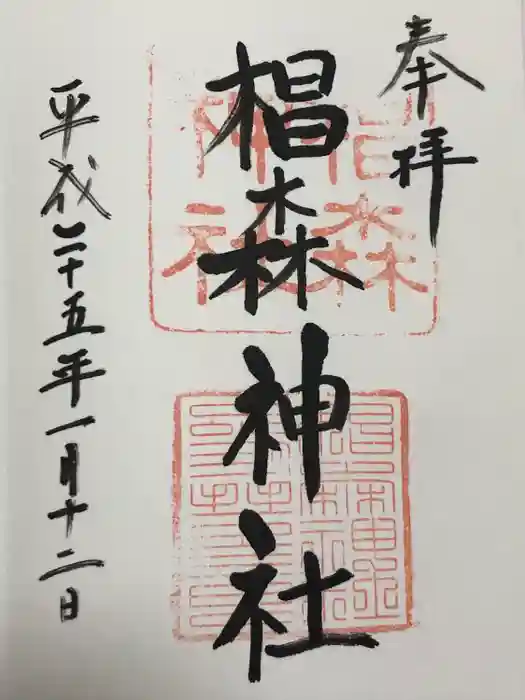 奉拝
椙森神社
平成二十五年一月十二日